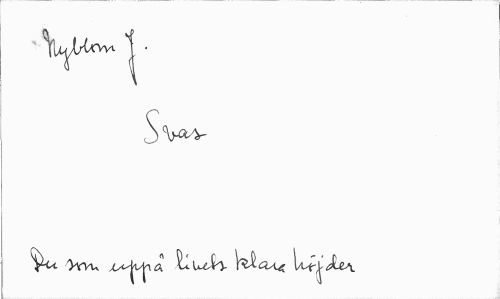 Nyblom J.
Svas
Du som uppå livets klara höjder